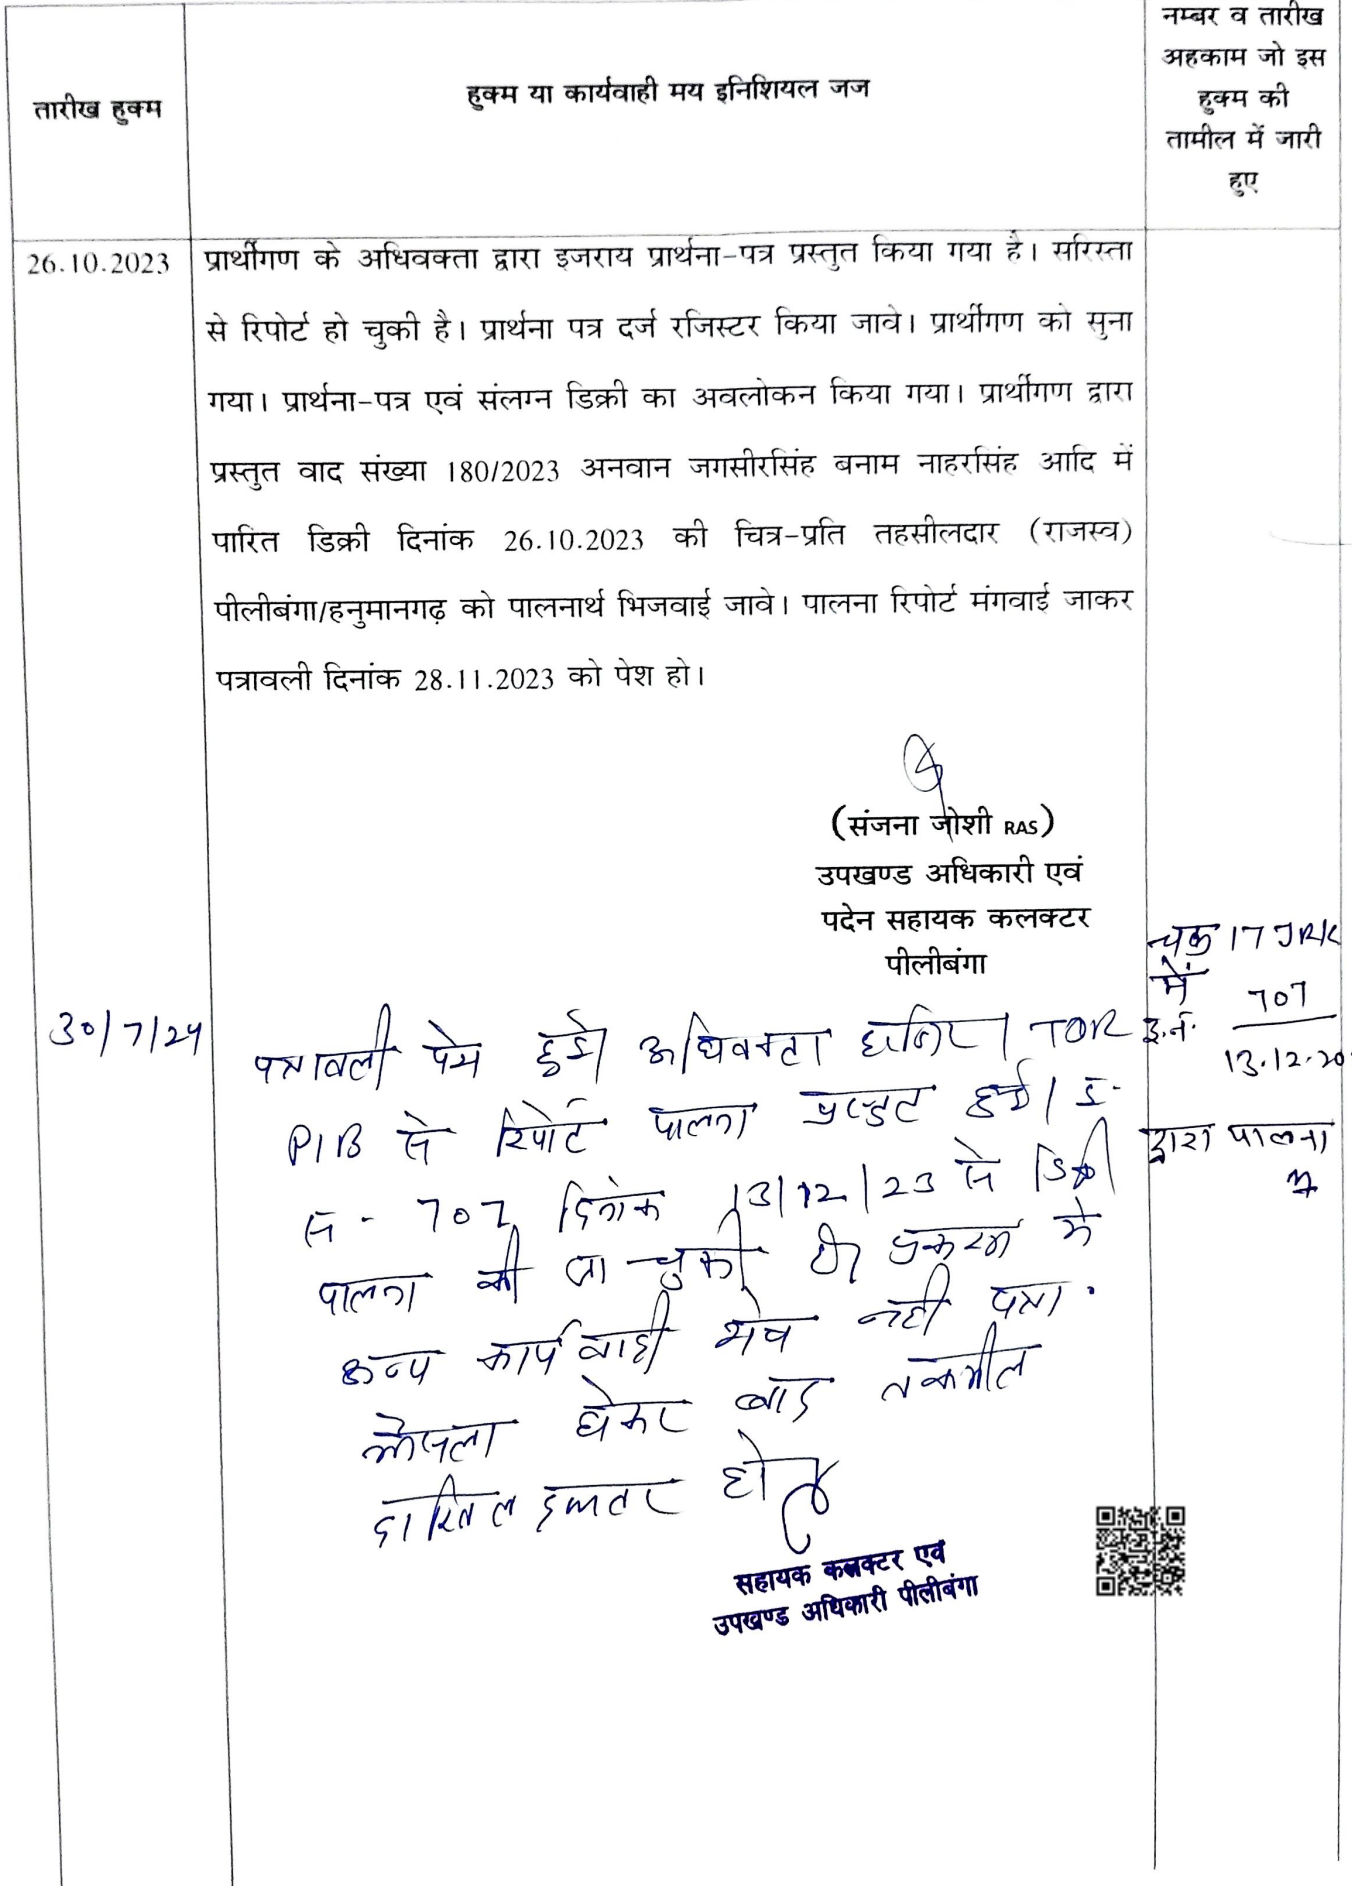 तारीख हुक्म
हुक्म या कार्यवाही मय इनिशियल जज
नम्बर व तारीख
अहकाम जो इस
हुक्म की
तामील में जारी
हुए
26.10.2023
प्रार्थीगण के अधिवक्ता द्वारा इजराय प्रार्थना-पत्र प्रस्तुत किया गया है। सरिस्ता
से रिपोर्ट हो चुकी है। प्रार्थना पत्र दर्ज रजिस्टर किया जावे। प्रार्थीगण को सुना
गया। प्रार्थना-पत्र एवं संलग्न डिक्री का अवलोकन किया गया। प्रार्थीगण द्वारा
प्रस्तुत वाद संख्या 180/2023 अनवान जगसीरसिंह बनाम नाहरसिंह आदि में
पारित डिक्री दिनांक 26.10.2023 की चित्र-प्रति तहसीलदार (राजस्व)
पीलीबंगा/हनुमानगढ़ को पालनार्थ भिजवाई जावे। पालना रिपोर्ट मंगवाई जाकर
पत्रावली दिनांक 28.11.2023 को पेश हो।
(संजना जोशी RAS)
उपखण्ड अधिकारी एवं
पदेन सहायक कलक्टर
पीलीबंगा
30/7/24
पत्रावली पेश हुई। अधिवक्ता हाजिर। TDR
PIB से रिपोर्ट पालना प्रस्तुत हुई। इ.
सं - 707 दिनांक 13/12/23 से डिक्री
पालना की जा चुकी है। प्रकरण मे
अन्य कार्यवाही शेष नही पत्रा.
फैसला होकर बाद तकमील
दाखिल दफ्तर हो
सहायक कलक्टर एवं
उपखण्ड अधिकारी पीलीबंगा
चक 17 JRK
में
707
इ.नं.
13.12.20
द्वारा पालना